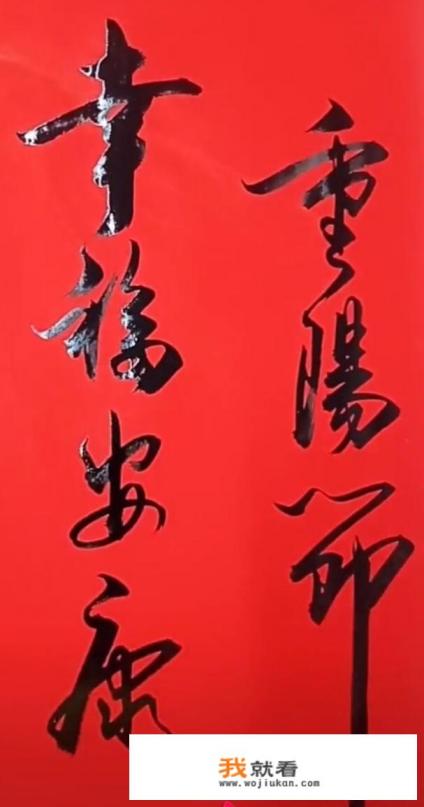 重陽節
幸福安康
我就看
www.wojiukan.com